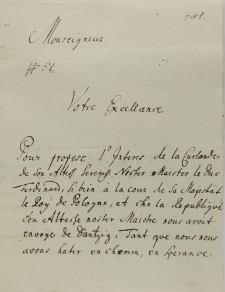 Monseigneur.
Votre Excellance
Pour propose l'Interes de la Curlande
de Son Altess Sereniss Noster Maister le Duc
Ferdinand, si bien à la cour de Sa Majestat
le Roy de Pologne, et che la Republique
Son Altesse noster Maistre nous avoit
envoye de Dantzig, Tant que nous nous
avons hater en chemin, en Sperance